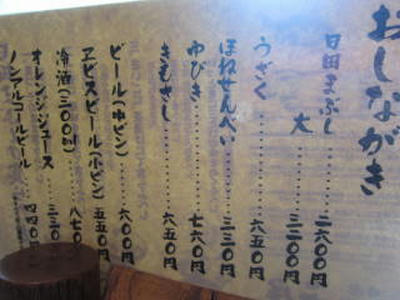 おしながき
日田まぶし……二六〇〇円
大……三二〇〇円
うざく……六五〇円
ほねせんべい……三三〇円
ゆびき……七六〇円
きもさし……六五〇円
ビール(中ビン)……六〇〇円
ヱビスビール(小ビン)五五〇円
冷酒(三〇〇ml)……八七〇円
オレンジジュース……三三
ノンアルコールビール……四四〇円